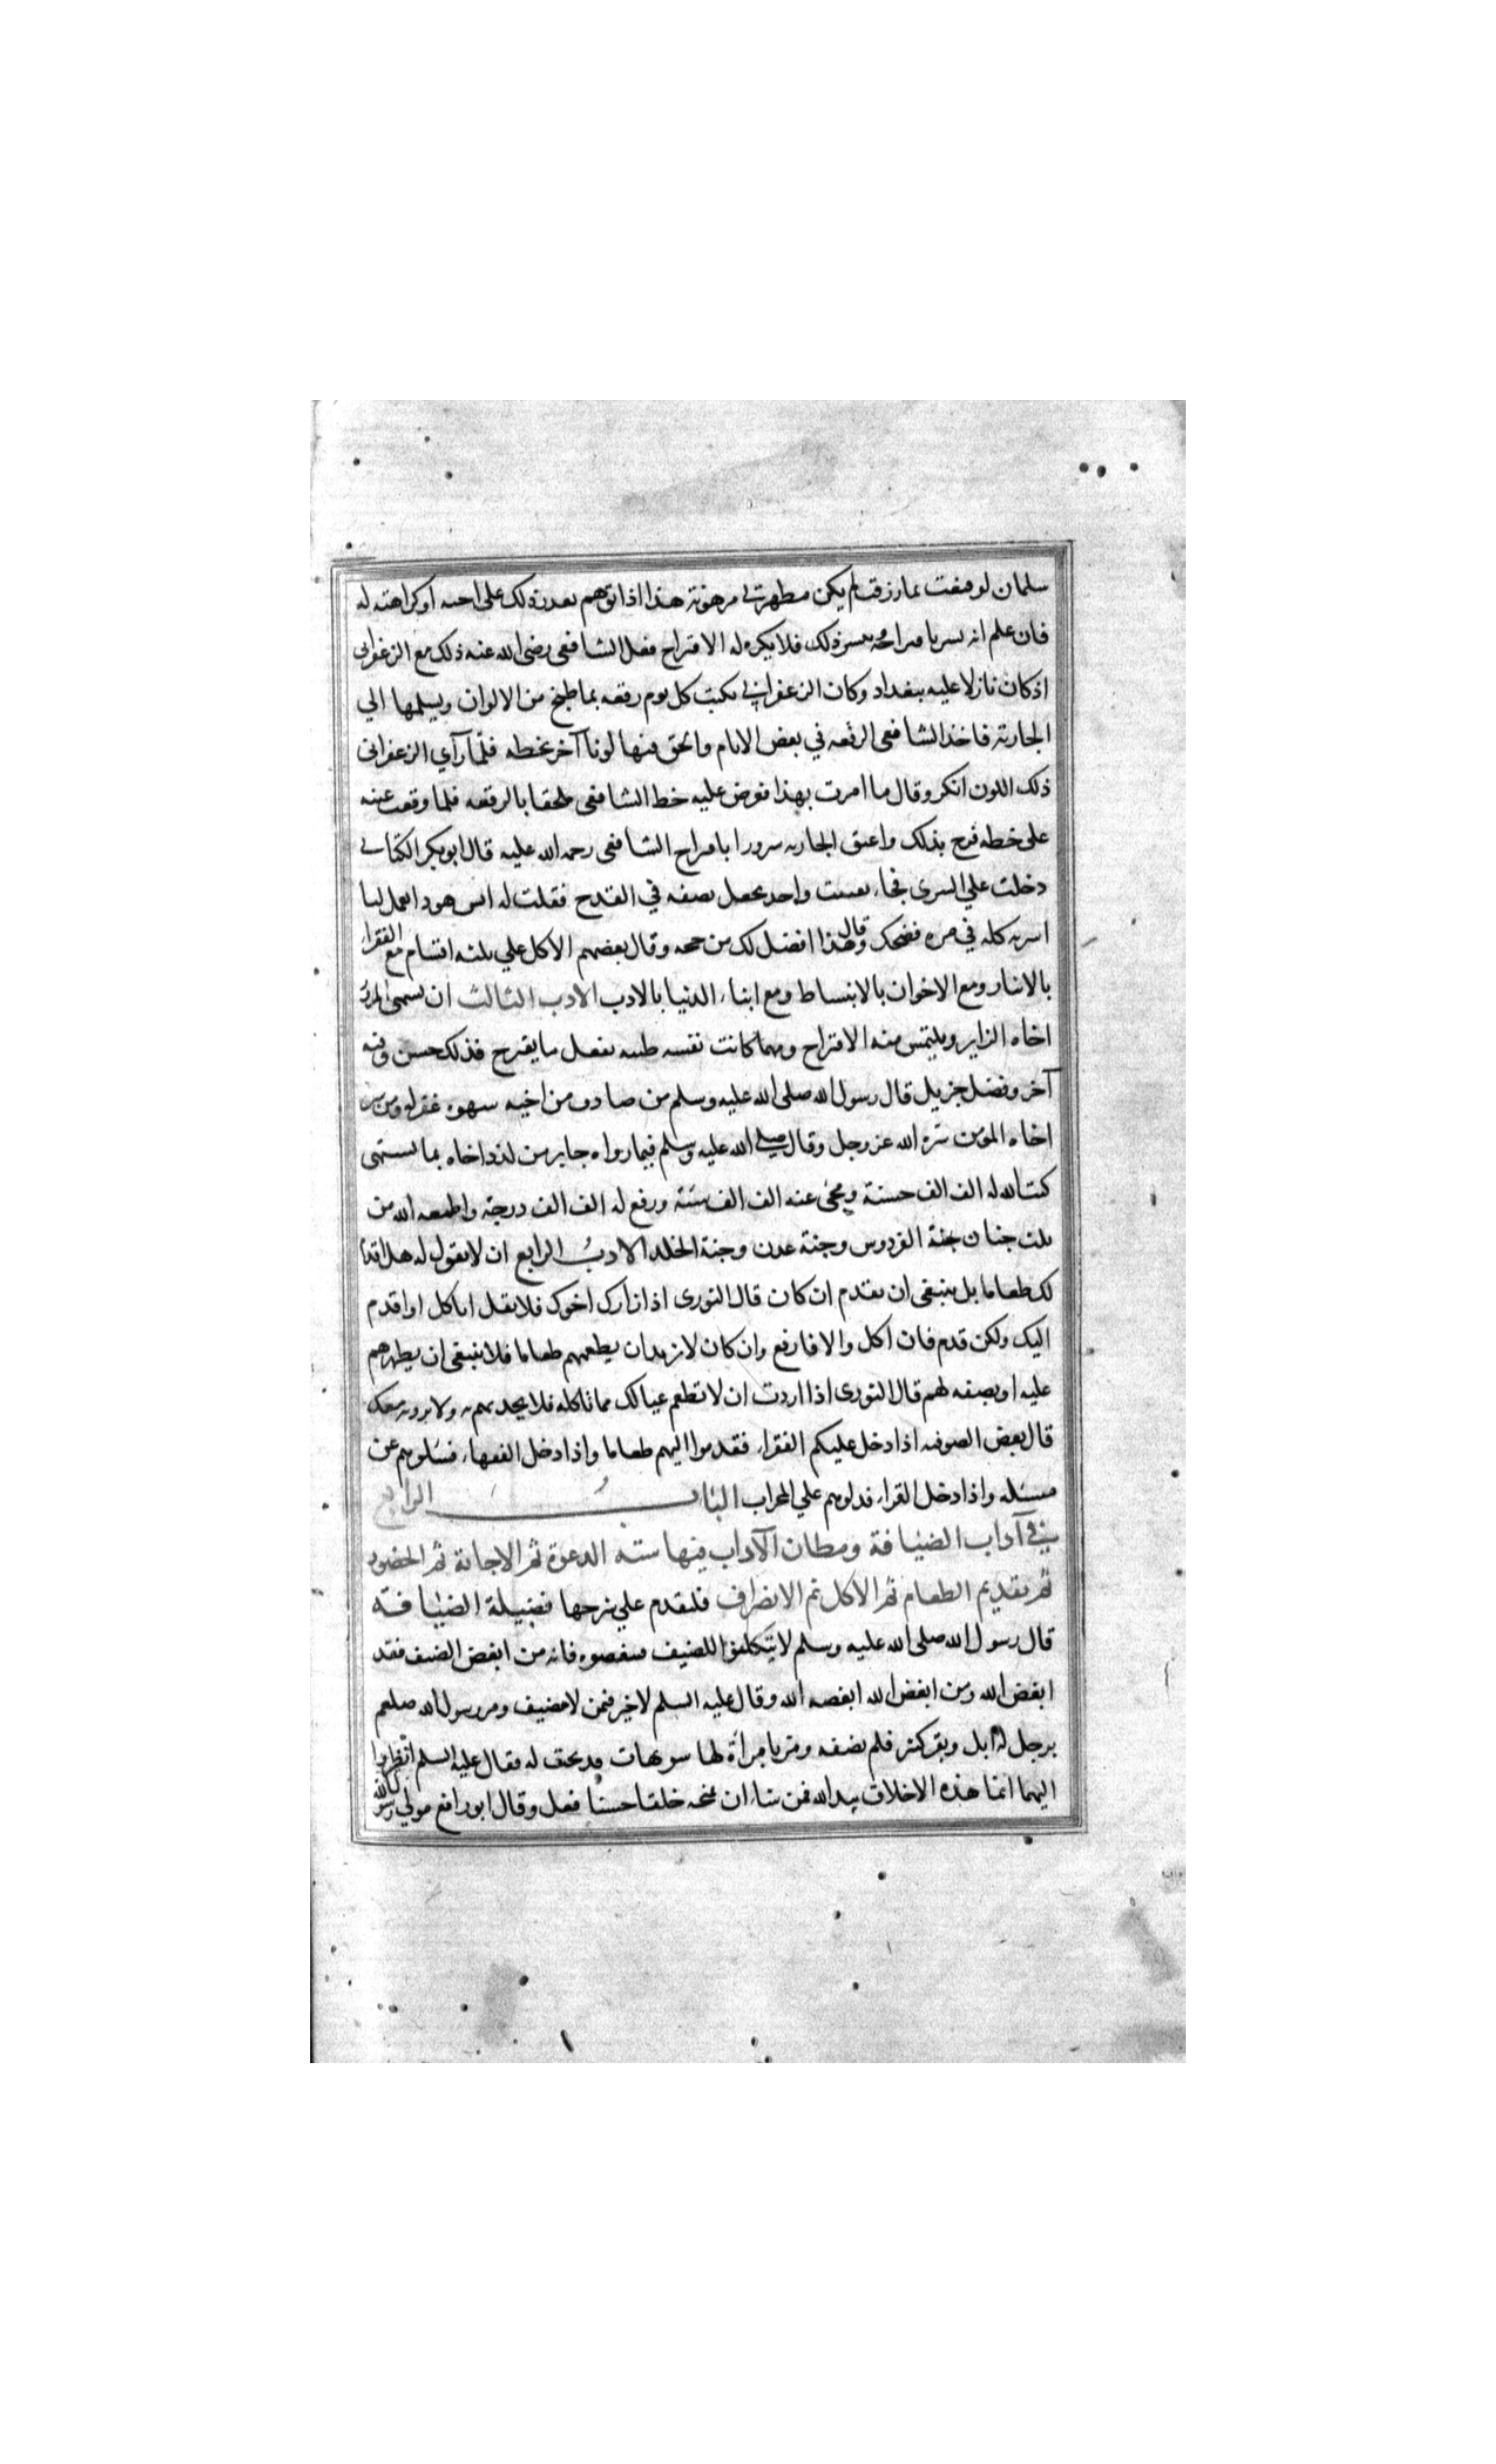 سلمان لو قنعت بما رزقت لم يكن مطهرتي مرهونة هذا اذا توهم تعذر ذلك على اخيه او كراهته له
فان علم انه يسر باقتراحه ويتيسر ذلك فلا يكره له الاقتراح فعل الشافعى رضى الله عنه ذلك مع الزعفرانى
اذ كان نازلا عليه ببغداد وكان الزعفراني يكتب كل يوم رقعه بما طبخ من الالوان ويسلمها الي
الجارية فاخذ الشافعى الرقعه في بعض الايام والحق فيها لونا آخر بخطه فلمّا رآي الزعفرانى
ذلك اللون انكر وقال ما امرت بهذا فعرض عليه خط الشافعى ملحقا بالرقعه فلما وقعت عينه
على خطه فرح بذلك واعتق الجاريه سرورا باقتراح الشافعى رحمه الله عليه قال ابو بكر الكتانى
دخلت علي السرى فجاء بفتيت واخذ يجعل نصفه في القدح فقلت له ايش هوذا تعمل انا
اشربه كله في مره فضحك وقال هذا افضل لك من حجه وقال بعضهم الاكل علي ثلثه اقسام مع الفقراء
بالايثار ومع الاخوان بالانبساط ومع ابناء الدنيا بالادب الادب الثالث ان يشهى المزور
اخاه الزاير ويلتمس منه الاقتراح ومهما كانت نفسه طيبه بفعل ما يقترح فذلك حسن وفيه
آخر وفضل جزيل قال رسول الله صلى الله عليه وسلم من صادف من اخيه شهوه غفر له ومن سر
اخاه المومن سره الله عز وجل وقال صلى الله عليه وسلم فيما رواه جابر من لذذ اخاه بما يشتهى
كتب الله له الف الف حسنة ومحى عنه الف الف سيئة ورفع له الف الف درجة واطعمه الله من
ثلث جنان جنة الفردوس وجنة عدن وجنة الخلد الادب الرابع ان لا يقول له هل اقدم
لك طعاما بل ينبغى ان يقدم ان كان قال الثورى اذا زارك اخوك فلا تقل اتاكل او اقدم
اليك ولكن قدم فان اكل والا فارفع وان كان لا يريد ان يطعمهم طعاما فلا ينبغى ان يظهرهم
عليه او يصفه لهم قال الثورى اذا اردت ان لا تطعم عيالك مما تاكله فلا تحدثهم به ولا يرونه معك
قال بعض الصوفيه اذا دخل عليكم الفقراء فقدموا اليهم طعاما واذا دخل الفقهاء فسلوهم عن
مسئله واذا دخل القراء فدلوهم علي المحراب الباب الرابع
في آداب الضيافة ومظان الآداب فيها سته الدعوة ثم الاجابة ثم الحضور
ثم تقديم الطعام ثم الاكل ثم الانصراف فلنقدم علي شرحها فضيلة الضيافة
قال رسول الله صلى الله عليه وسلم لا يتكلفوا للضيف فتبغضوه فانه من ابغض الضيف فقد
ابغض الله ومن ابغض الله ابغضه الله وقال عليه السلم لا خير فيمن لا يضيف ومر رسول الله صلعم
برجل له ابل وبقر كثير فلم يضفه ومر بامرأة لها شويهات فذبحت له فقال عليه السلم انظروا
اليهما انما هذه الاخلاق بيد الله فمن شاء ان يمنحه خلقا حسنا فعل وقال ابو رافع مولي رسول الله